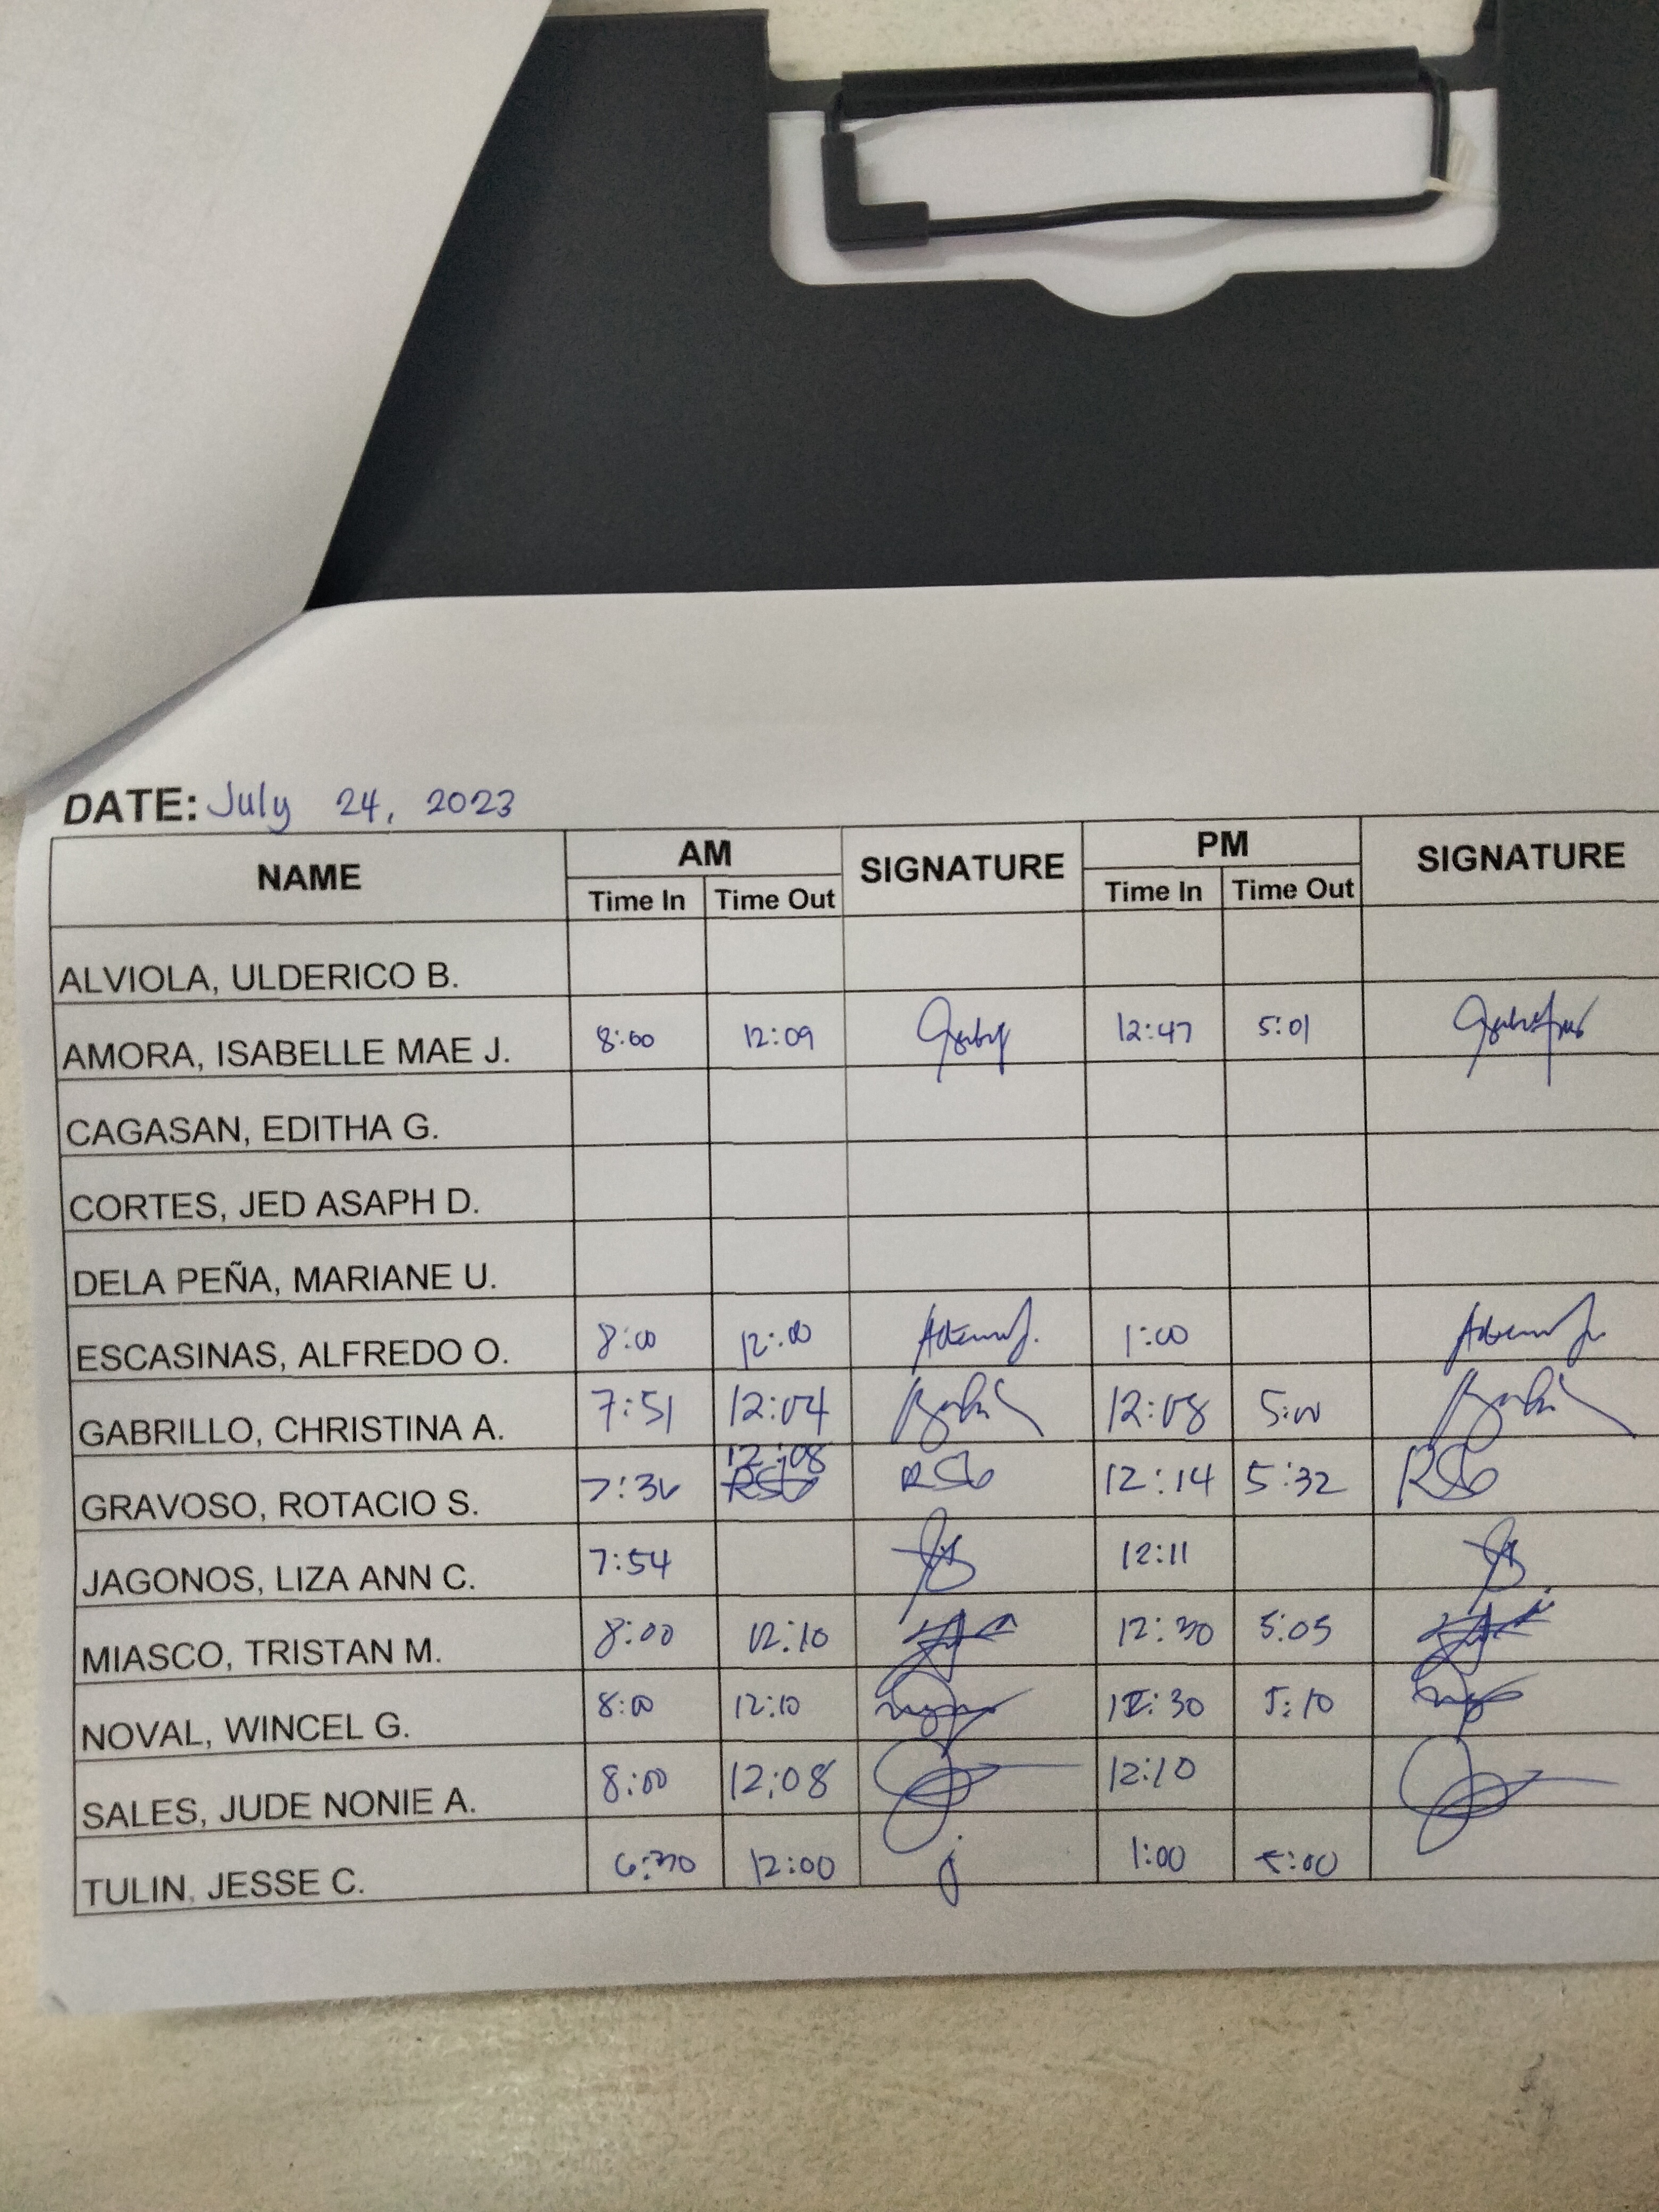 DATE: July 24, 2023
NAME AM SIGNATURE PM SIGNATURE
Time In Time Out Time In Time Out
ALVIOLA, ULDERICO B.
AMORA, ISABELLE MAE J. 8:00 12:09 12:47 5:01
CAGASAN, EDITHA G.
CORTES, JED ASAPH D.
DELA PEÑA, MARIANE U.
ESCASINAS, ALFREDO O. 8:00 12:00 1:00
GABRILLO, CHRISTINA A. 7:51 12:04 12:08 5:00
12:08
GRAVOSO, ROTACIO S. 7:36 RSG RSG 12:14 5:32 RSG
JAGONOS, LIZA ANN C. 7:54 12:11
MIASCO, TRISTAN M. 8:00 12:10 12:30 5:05
NOVAL, WINCEL G. 8:00 12:10 12:30 5:10
SALES, JUDE NONIE A. 8:00 12:08 12:10
TULIN, JESSE C. 6:30 12:00 j 1:00 5:00